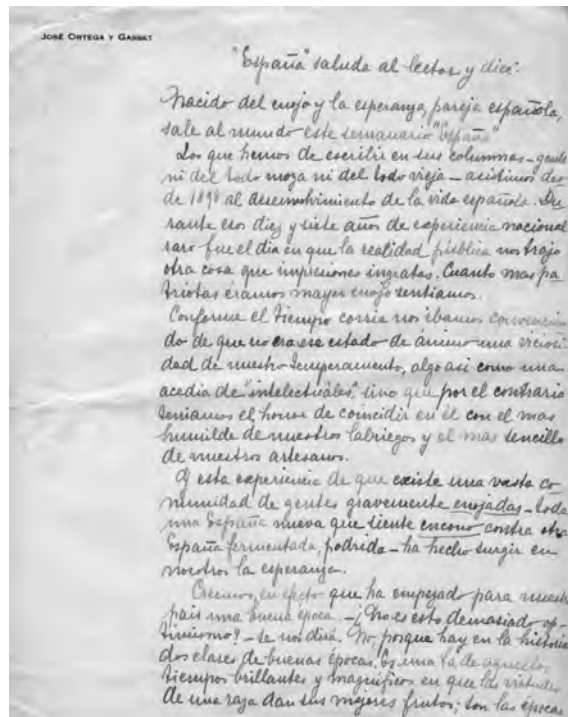 JOSÉ ORTEGA Y GASSET
"España" saluda al lector y dice:
Nacido del enojo y la esperanza, pareja española,
sale al mundo este semanario "España"
Los que hemos de escribir en sus columnas – gente
ni del todo moza ni del todo vieja – asistimos des
de 1898 al desenvolvimiento de la vida española. Du
rante esos diez y siete años de experiencia nacional
raro fue el día en que la realidad pública nos trajo
otra cosa que impresiones ingratas. Cuanto mas pa
triotas éramos mayor enojo sentiamos.
Conforme el tiempo corrie nos ibamos convencien
do de que no era ese estado de ánimo una viciosi
dad de nuestro temperamento, algo asi como una
acedia de "intelectuales", sino que por el contrario
teniamos el honor de coincidir en él con el mas
humilde de nuestros labriegos y el mas sencillo
de nuestros artesanos.
Y esta experiencia de que existe una vasta co-
munidad de gentes gravemente enojadas – toda
una España nueva que siente encono contra otra
España fermentada, podrida – ha hecho surgir en
nosotros la esperanza.
Creemos, en efecto que ha empezado para nuestro
pais una buena época. – ¿No es esto demasiado op-
timismo? – se nos dirá. No, porque hay en la historia
dos clases de buenas épocas. Es una la de aquellos
tiempos brillantes y magníficos en que las virtudes
de una raza dan sus mejores frutos; son las épocas